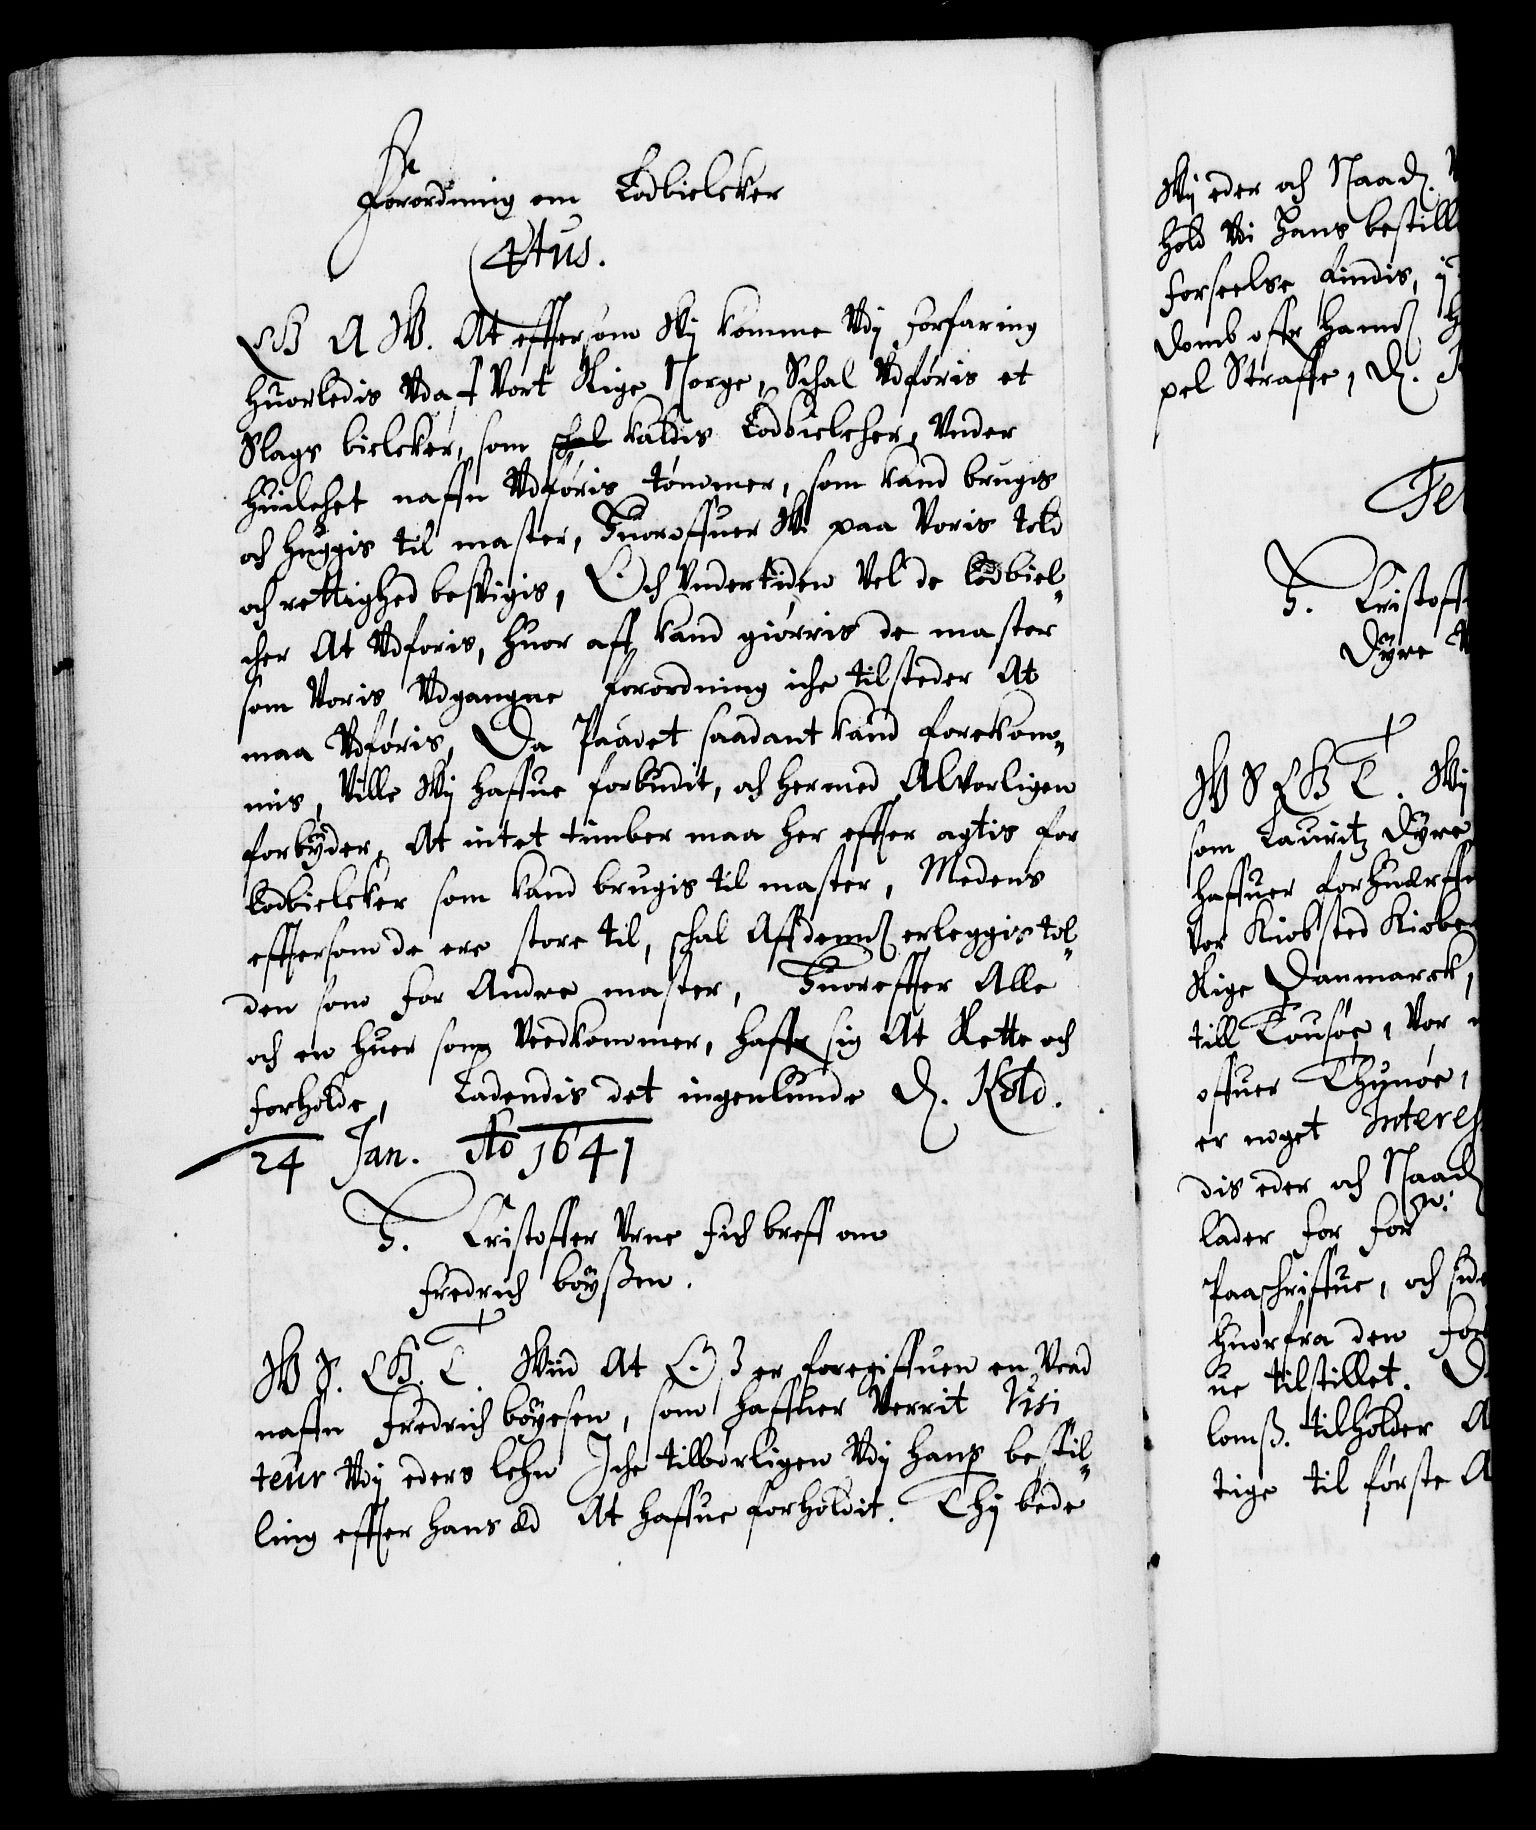 Forordning om Lodbielcker
C4tus.
G A W. At efftersom Wij komme Vdj forfaring
huorledis Vdaf Vort Rige Norge, Schal Vdføris et
Slags bielcker, som schal kaldis Lodbielcher, Vnder
huilchet naffn Vdføris tømmer, som kand brugis
och huggis til master, Huoroffuer W. paa Voris told
och rettighed besuigis, Och Vndertiden Vel de Lodbiel„
cher At Vdføris, huor aff kand giørris de master
som Voris Vdgangne forordning iche tilsteder At
maa Vdføris, Da Paadet saadant kand forekom„
mis, Ville Wij haffue forbudit, och hermed Alvorligen
forbyder, At intet timber maa her effter agtis for
Lodbielcker som kand brugis til master, Medens
effttersom de ere store til, schal Affdennem erleggis tol„
den som for Andre master, Huoreffter Alle
och en huer som Vedkommer, haffr sig At Rette och
forholde, Ladendis det ingenlunde D. Kold.
24 Jan. Ao 1641
H. Cristoffer Vrne fich breff om
Fredrich böyssen.
W S. G. T. Wiid At Oss er foregiffuen en Ved
naffn Fredrich böyesen, som haffuer Verrit Visi„
teur Vdj eders lehn Iche tilbørligen Vdj hans bestil„
ling effter hans æd At haffue forholdit. Thj bede
Wij eder och Naad.
hold Vdi hans bestill
forseelse findis, i
domb offr hannem
pel Straffe, D.
H. Cristoff
Dyre
W S G T. Wij
som Lauritz Dyre
haffuer forhuerffu
Vor Kiøbsted Kiøben
Rige Danmarck,
till Tousøe, Vor
offuer Thunøe,
er noget Interes
dis eder och Naad
lader for for n:
Paaschriffue, och side
huorfra den for
ue tilstillet.
lomß. tilholder
tige til første A